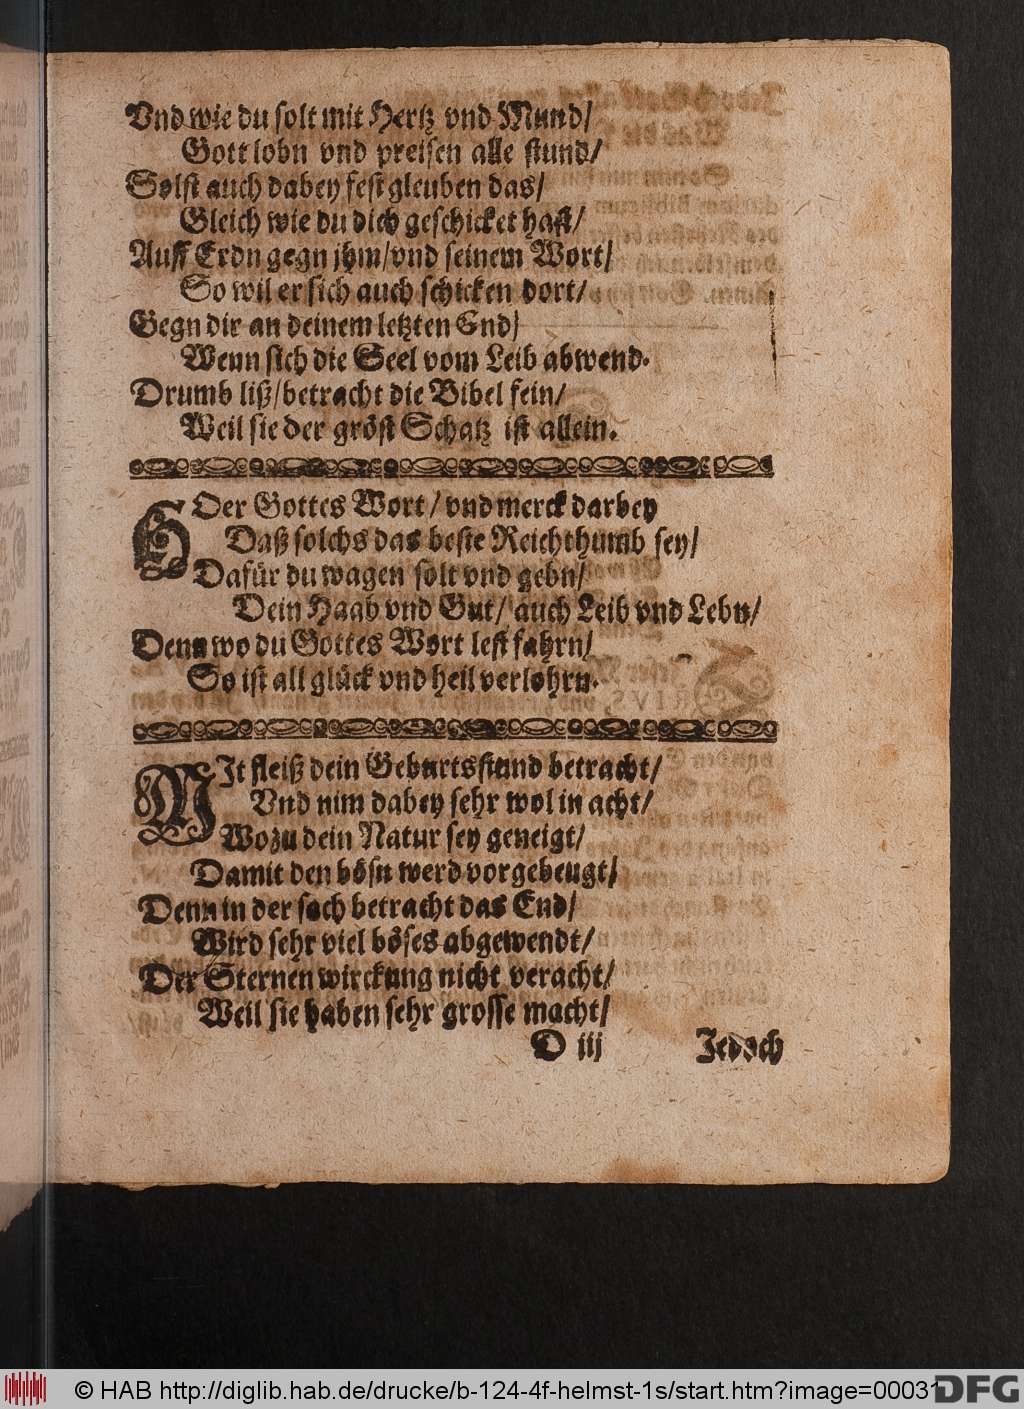 Vnd wie du solt mit Hertz vnd Mund/
Gott lobn vnd preisen alle stund/
Solst auch dabey fest gleuben das/
Gleich wie du dich geschicket hast/
Auff Erdn gegn jhm/vnd seinem Wort/
So wil er sich auch schicken dort/
Gegn dir an deinem letzten End/
Wenn sich die Seel vom Leib abwend.
Drumb liß/betracht die Bibel fein/
Weil sie der gröst Schatz ist allein.
HOer Gottes Wort/ vnd merck darbey
Daß solchs das beste Reichthumb sey/
Dafür du wagen solt vnd gebn/
Dein Haab vnd Gut/ auch Leib vnd Lebn/
Denn wo du Gottes Wort lest fahrn/
So ist all glück vnd heil verlohrn.
MIt fleiß dein Geburtsstund betracht/
Vnd nim dabey sehr wol in acht/
Wozu dein Natur sey geneigt/
Damit den bösn werd vorgebeugt/
Denn in der sach betracht das End/
Wird sehr viel böses abgewendt/
Der Sternen wirckung nicht veracht/
Weil sie haben sehr grosse macht/
D iij Jedoch
© HAB http://diglib.hab.de/drucke/b-124-4f-helmst-1s/start.htm?image=00031
DFG